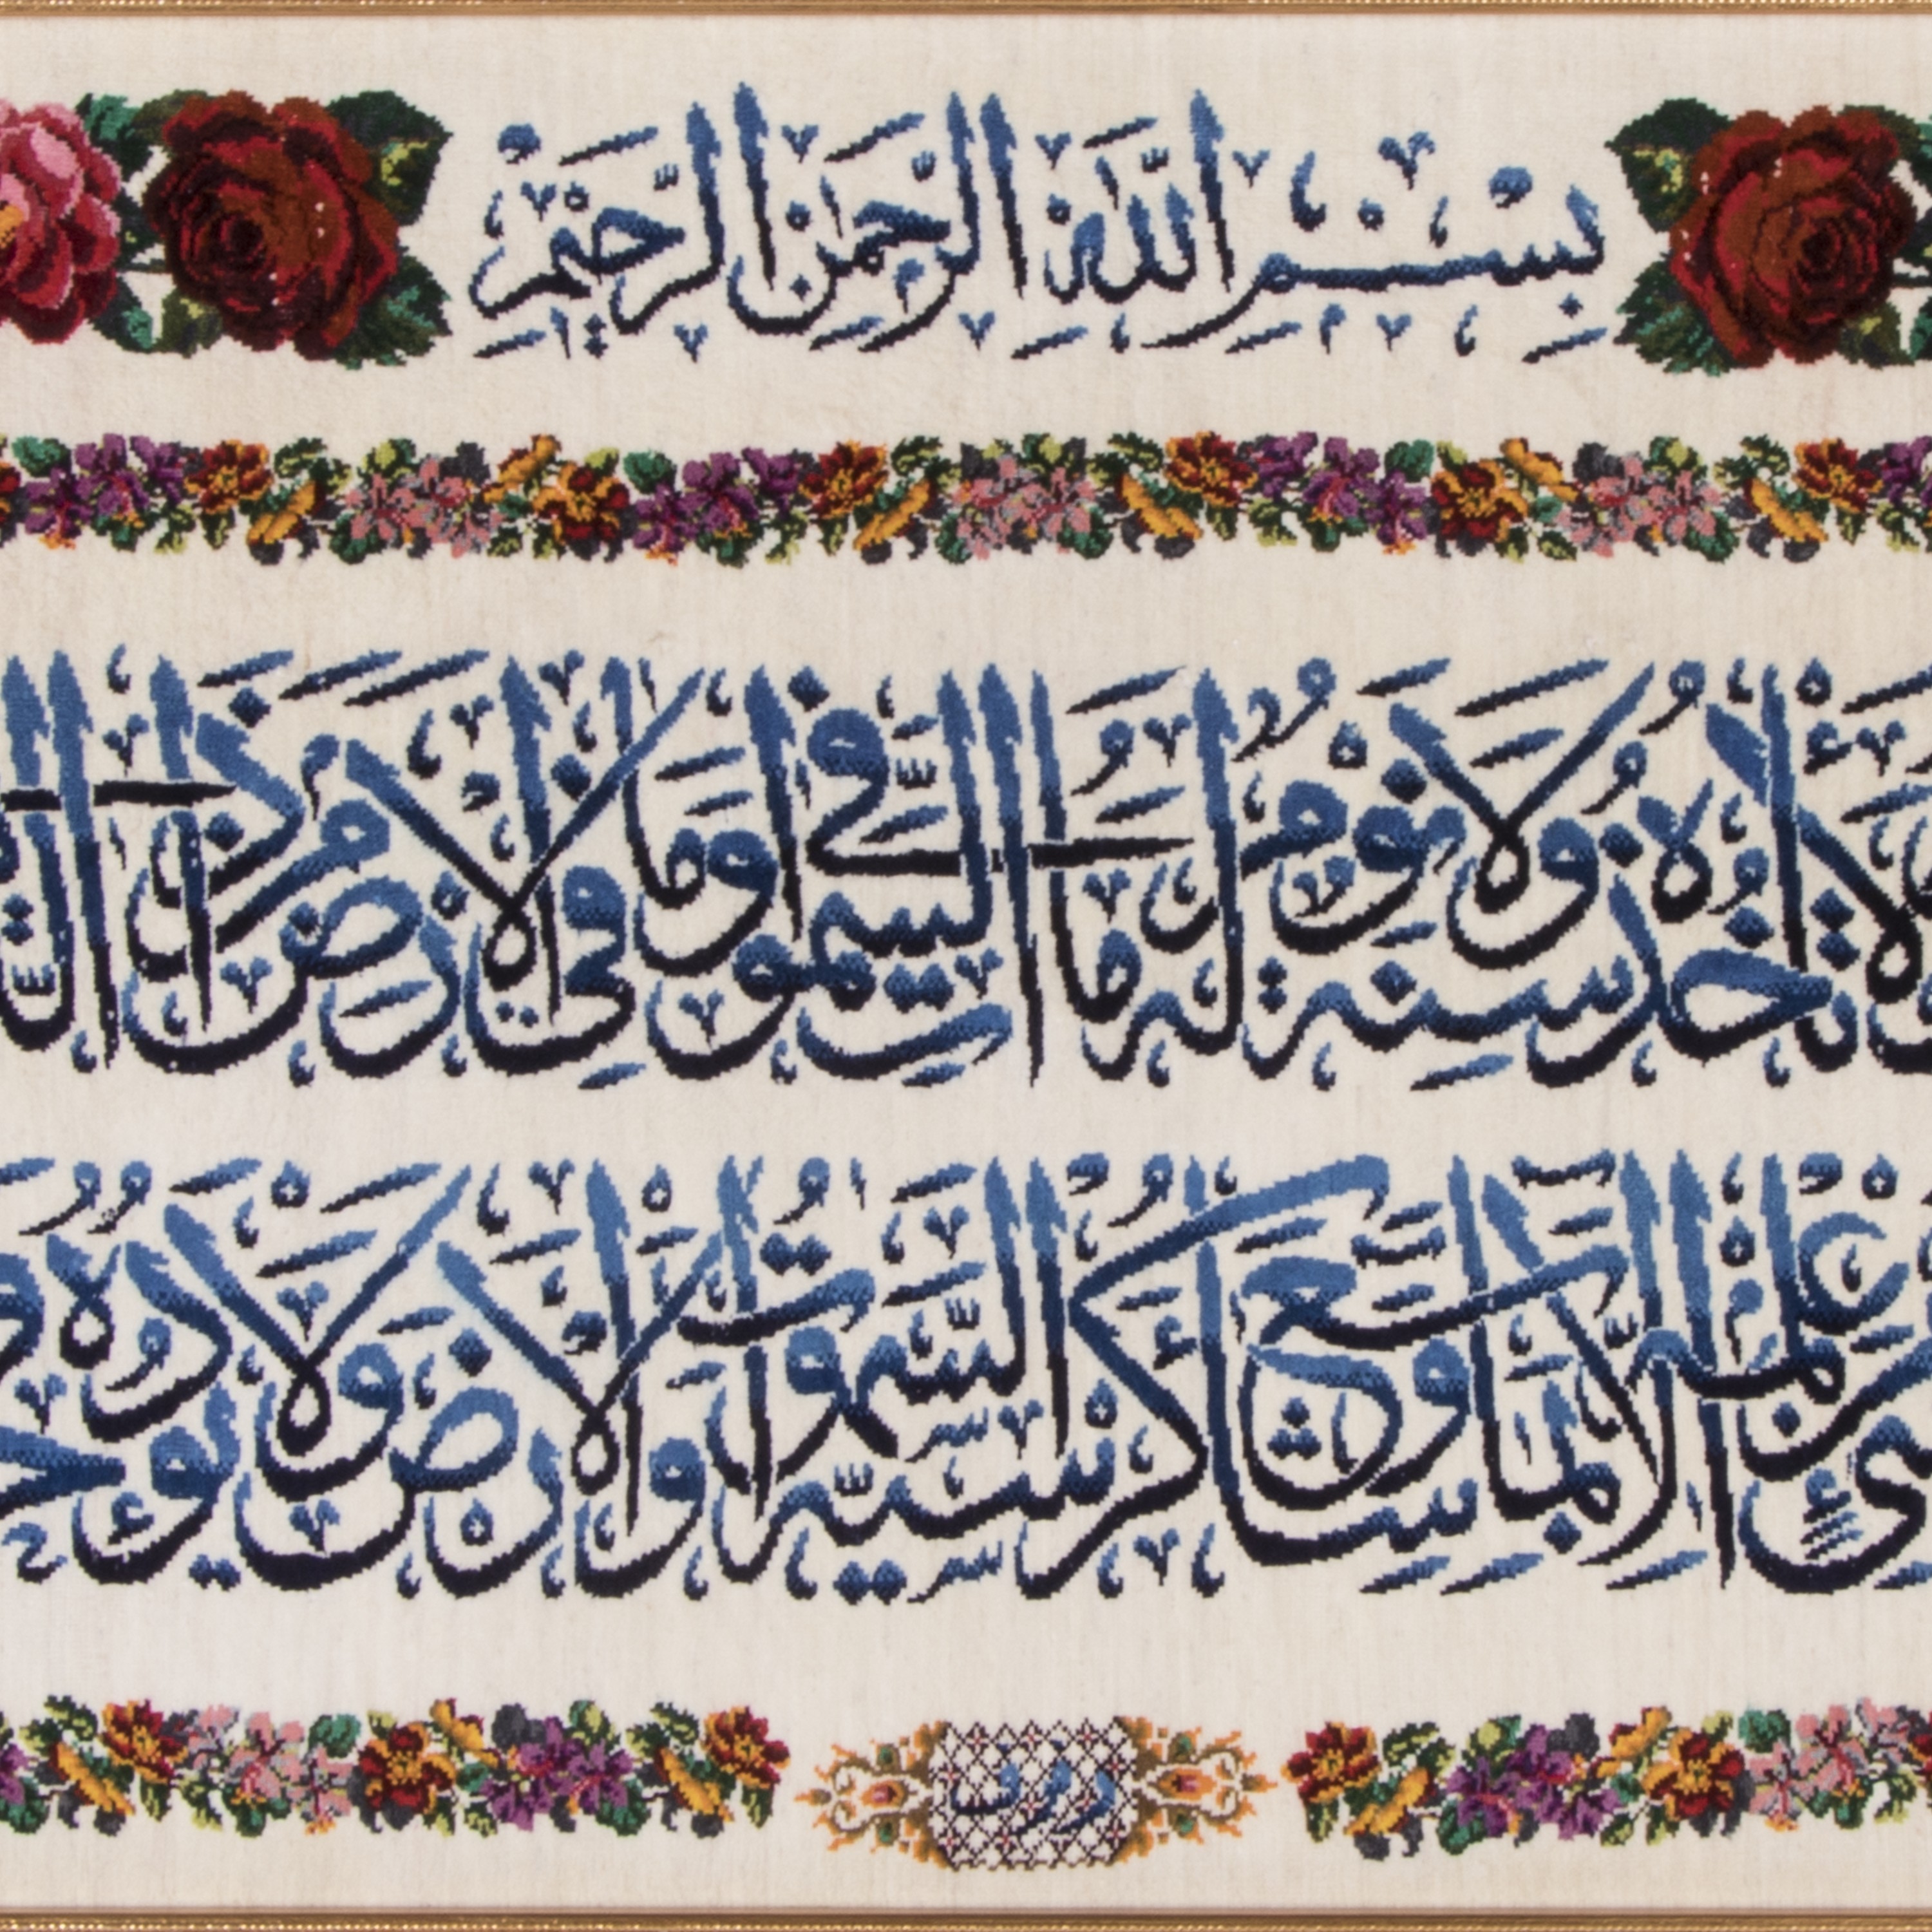 بِسْمِ اللَّهِ الرَّحْمَنِ الرَّحِيمِ
لَا تَأْخُذُهُ سِنَةٌ وَلَا نَوْمٌ لَهُ مَا فِي السَّمَوَاتِ وَمَا فِي الْأَرْضِ مَنْ ذَا
مِنْ عِلْمِهِ إِلَّا بِمَا شَاءَ وَسِعَ كُرْسِيُّهُ السَّمَوَاتِ وَالْأَرْضَ وَلَا يَؤُدُهُ